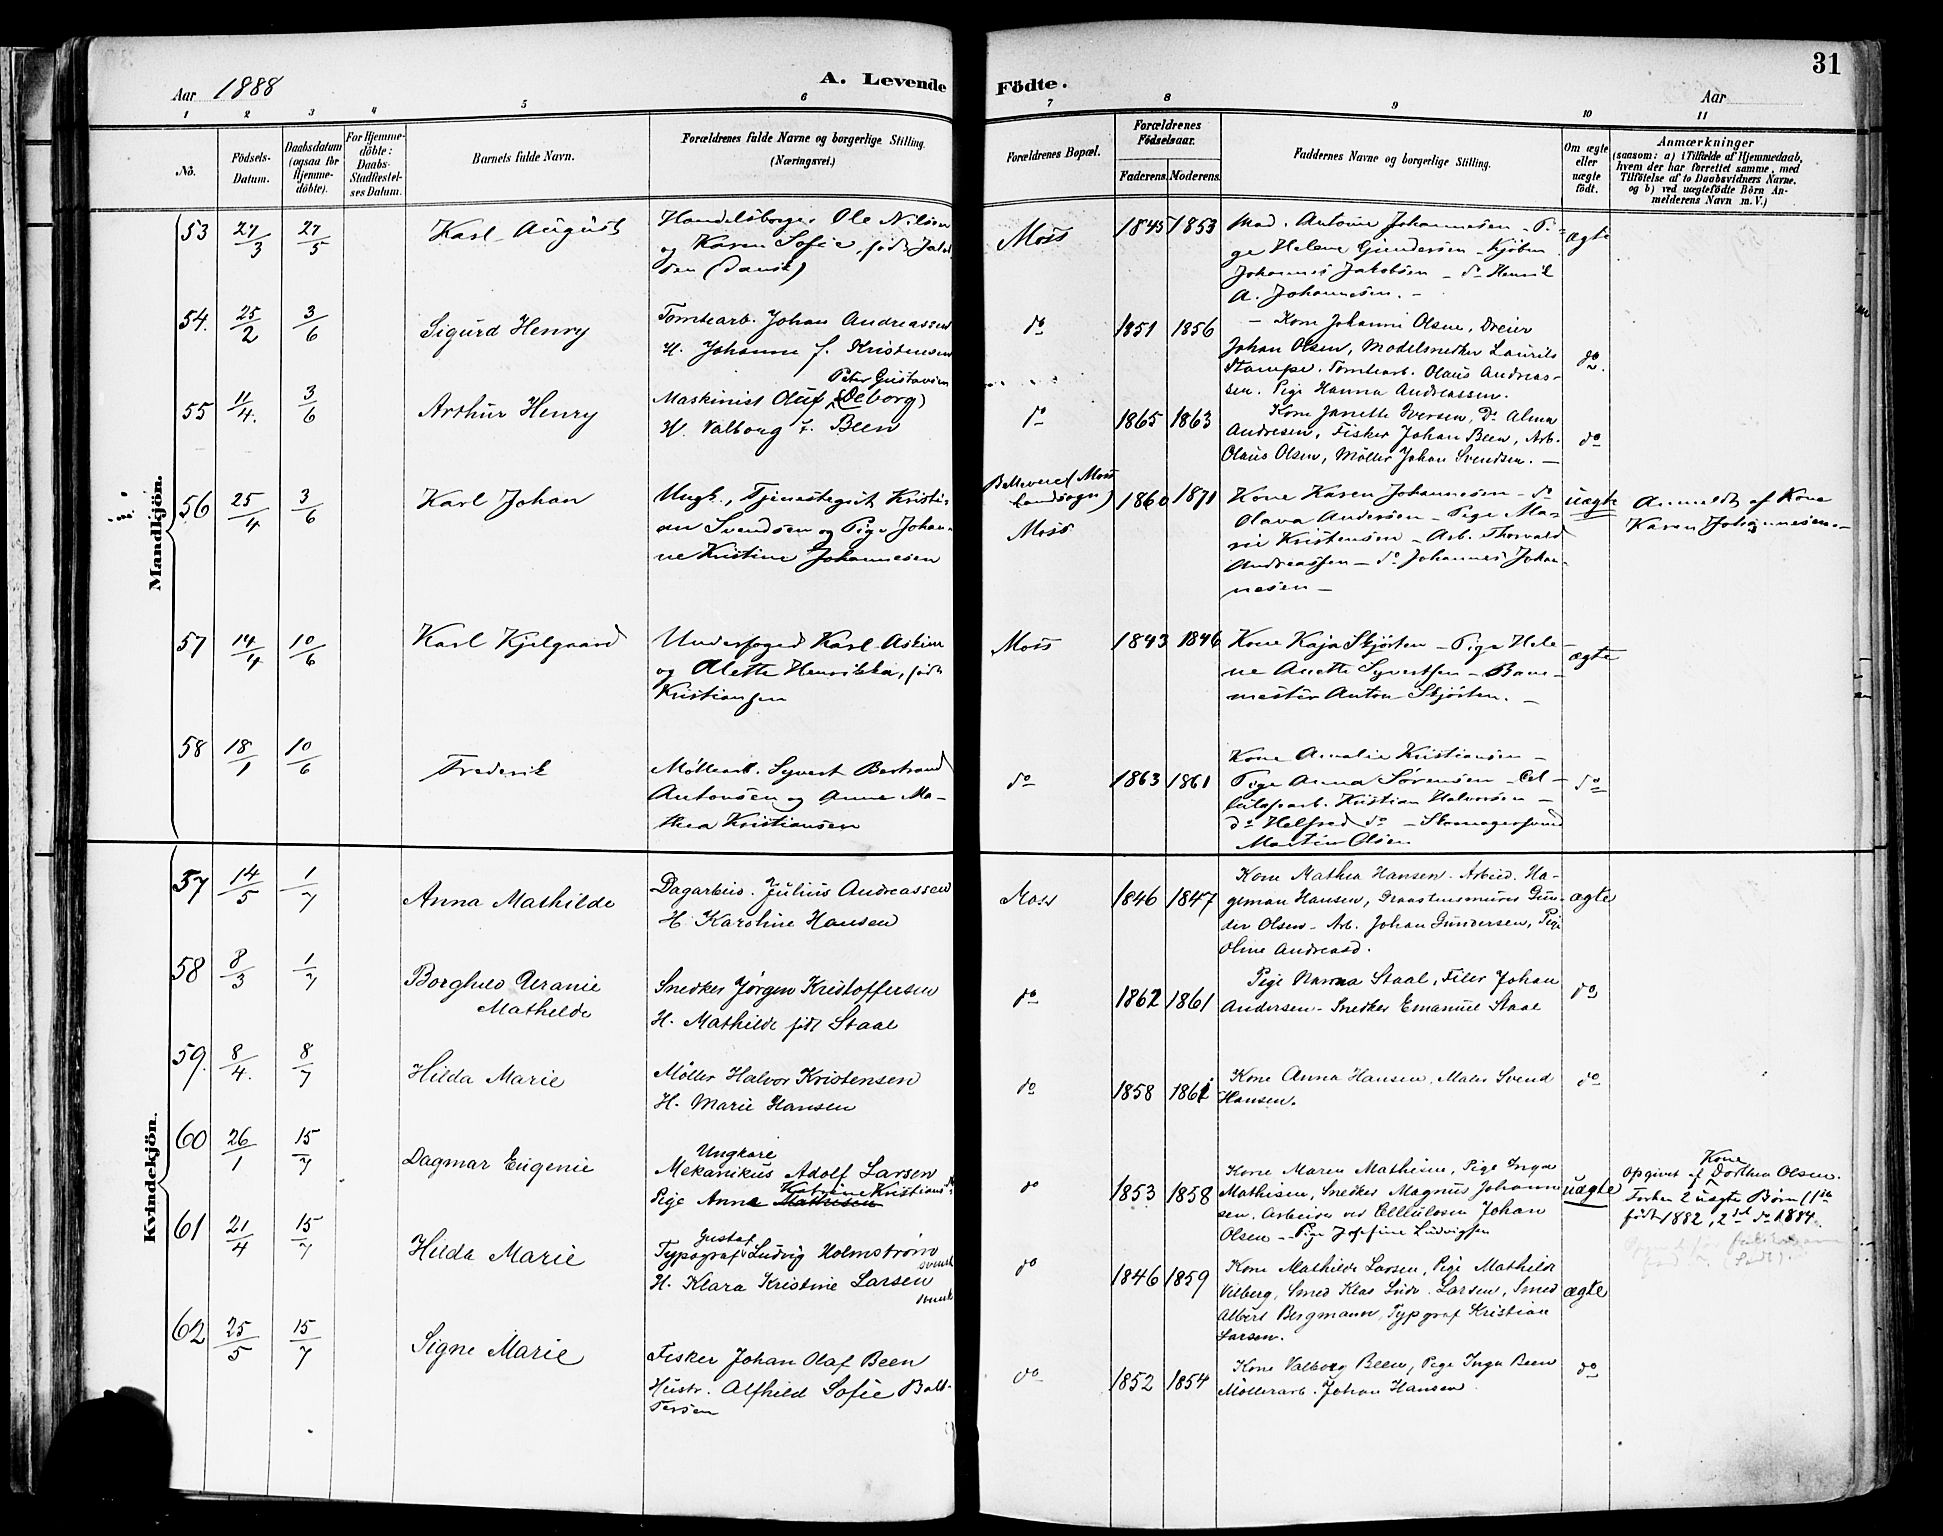 31
Aar 1888
A. Levende Födte.
Aar
1 2 3 4 5 6 7 8 9 10 11
No.
Födsels-Datum.
Daabsdatum (ogsaa for Hjemme-döbte).
For Hjemme-döbte: Daabs-Stadfæstel-ses Datum.
Barnets fulde Navn.
Forældrenes fulde Navne og borgerlige Stilling.
(Næringsvei.)
Forældrenes Bopæl.
Forældrenes Födselsaar.
Faderens. Moderens.
Faddernes Navne og borgerlige Stilling.
Om ægte eller uægte födt.
Anmærkninger
(saasom: a) i Tilfælde af Hjemmedaab,
hvem der har forrettet samme, med
Tilföielse af to Daabsvidners Navne,
og b) ved uægtefödte Börn An-
melderens Navn m. V.)
Mandkjön.
53 27/3 27/5 Karl August
Handelsborger Ole Nilsen
og Karen Sofie, født Jakob
sen (dansk)
Moss 1845 1853
Mad. Antonie Johannesen - Pi-
ge Helene Gundersen - Kjøbm.
Johannes Jakobsen - do Henrik
A. Johannesen. -
ægte
54. 25/2 3/6 Sigurd Henry
Tomtearb. Johan Andreassen
H. Johanne f. Kristensen
do 1851 1856
- Kone Johanne Olsen, Dreier
Johan Olsen, Modelsnedker Laurits
Stampe. Tomtearb. Olaus Andreas-
sen. Pige Hanna Andreassen.
do.
55 11/4. 3/6 Arthur Henry
Peter Gustavsen
Maskinist Oluf (Deborg)
H. Valborg f. Been
do 1865 1863
Kone Janette Iversen, Do Alma
Andresen, Fisker Johan Been, Arb.
Olaus Olsen, Møller Johan Svendsen. -
do
56 25/4 3/6 Karl Johan
Ungk., Tjenestegut Kristi-
an Svendsen og Pige Johan-
ne Kristine Johannesen
Bellevue (Moss
landsogn)
Moss
1860 1871
Kone Karen Johannesen - do
Olava Andersen - Pige Ma-
rie Kristensen - Arb. Thorvald
Andreassen - do Johannes Johan-
nesen -
uægte
Anmeldt af Kone
Karen Johannesen. -
57 14/4 10/6 Karl Kjelgaard
Underfoged Karl Askim
og Alette Henrikka, født
Kristiansen
Moss 1843 1846
Kone Kaja Skjørten - Pige Hele-
ne Anette Syvertsen - Bane-
mester Anton Skjørten. -
ægte
58 18/1 10/6 Frederik
Møllearb. Syvert Bertrand
Antonsen og Anne Ma-
thea Kristiansen
do 1863 1861
Kone Amalie Kristiansen -
Pige Anna Sørensen - Cel-
lulosearb. Kristian Halvorsen -
do Helfred do -
Martin Olsen
do
Kvindekjön.
57 14/5 1/7 Anna Mathilde
Dagarbeid. Julius Andreassen
H. Karoline Hansen
Moss 1846 1847
Kone Mathea Hansen. Arbeid. Ha-
geman Hansen, Graastensmurer Gun-
der Olsen - Arb. Johan Gundersen, Pige
Oline Andreasd.
ægte
58 8/3 1/7 BorghildUeranie
Mathilde
Snedker Jørgen Kristoffersen
H. Mathilde født Staal
do 1862 1861
Pige Nanna Staal, Filer Johan
Andersen - Snedker Emanuel Staal
do
59. 8/4. 8/7 Hilda Marie
Møller Halvor Kristensen
H. Marie Hansen
do 1858 1861
Kone Anna Hansen, Maler Svend
Hansen.
do
60 26/1 15/7 Dagmar Eugenie
Ungkare
Mekanikus Adolf Larsen
Pige Anna Mathisen Katrine Kristiansd.
do 1853 1858
Kone Maren Mathisen, Pige Inga
Mathisen, Snedker Magnus Johann
sen. Arbeider ved Cellulosen Johan
Olsen - Pige Josefine Ludvigsen
uægte
Kone
Opgivet af Dorthea Olsen.
Forhen 2 uægte Børn (1ste
født 1882, 2det do 1884.
61 21/4 15/7 Hilda Marie
Gustaf
Typograf Ludvig Holmstrøm
svensk
H. Klara Kristine Larsen
svensk
do 1846 1859
Kone Mathilde Larsen, Pige Mathilde
Vilberg, Smed Klas Ludv. Larsen, Smed
Albert Bergmann, Typograf Kristian
Larsen.
ægte
62 25/5 15/7 Signe Marie
Fisker Johan Olaf Been
Hustr. Alfhild Sofie Bolt-
Tersen
do 1852 1854
Kone Valborg Been, Pige Inga Been
Møllerarb. Johan Hansen.
do